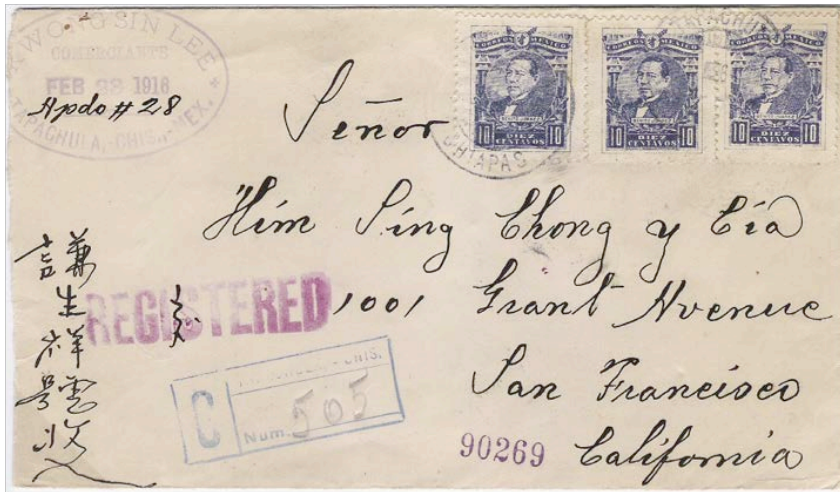 WONG SIN LEE
COMERCIANTES
FEB 28 1916
TAPACHULA, CHIS., MEX.
Apdo # 28
CORREOS MEXICO
BENITO JUAREZ
10 DIEZ CENTAVOS 10
CORREOS MEXICO
BENITO JUAREZ
10 DIEZ CENTAVOS 10
CORREOS MEXICO
BENITO JUAREZ
10 DIEZ CENTAVOS 10
CHIAPAS
Señor
Him Sing Chong y Cía
1001 Grant Avenue
San Francisco
California
REGISTERED
C
CHIS.
Num. 505
90269
謙生祥
收